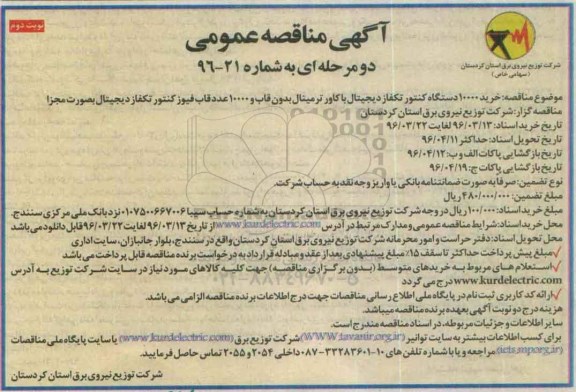 نوبت دوم
آگهی مناقصه عمومی
دو مرحله ای به شماره ۲۱-۹۶
شرکت توزیع نیروی برق استان کردستان
(سهامی خاص)
موضوع مناقصه: خرید ۱۰۰۰۰ دستگاه کنتور تکفاز دیجیتال با کاور ترمینال بدون قاب و ۱۰۰۰۰ عدد قاب فیوز کنتور تکفاز دیجیتال بصورت مجزا
مناقصه گزار: شرکت توزیع نیروی برق استان کردستان
تاریخ خرید اسناد: ۹۶/۰۳/۱۳ لغایت ۹۶/۰۳/۲۲
تاریخ تحویل اسناد: حداکثر ۹۶/۰۴/۱۱
تاریخ بازگشایی پاکات الف و ب: ۹۶/۰۴/۱۲
تاریخ بازگشایی پاکات ج: ۹۶/۰۴/۱۹
نوع تضمین: صرفا به صورت ضمانتنامه بانکی یا واریز وجه نقد به حساب شرکت.
مبلغ تضمین: ۴۸۰/۰۰۰/۰۰۰ ریال
مبلغ خرید اسناد: ۱۰۰/۰۰۰ ریال در وجه شرکت توزیع نیروی برق استان کردستان به شماره حساب سیبا ۰۱۰۷۵۰۰۶۶۷۰۰۶ نزد بانک ملی مرکزی سنندج.
محل خرید اسناد: شرایط مناقصه عمومی و مدارک مرتبط در آدرس (www.kurdelectric.com) از تاریخ ۹۶/۰۳/۱۳ لغایت ۹۶/۰۳/۲۲ قابل دانلود می باشد
محل تحویل اسناد: دفتر حراست و امور محرمانه شرکت توزیع نیروی برق استان کردستان واقع در سنندج، بلوار جانبازان، سایت اداری
✓مبلغ پیش پرداخت حداکثر تا سقف ۱۵٪ مبلغ پیشنهادی بعد از عقد و مبادله قرارداد به درخواست برنده مناقصه قابل پرداخت می باشد
✓استعلام های مربوط به خریدهای متوسط (بدون برگزاری مناقصه) جهت کلیه کالاهای مورد نیاز در سایت شرکت توزیع به آدرس
www.kurdelectric.com درج می گردد
✓ارائه کد کاربری ثبت نام در پایگاه ملی اطلاع رسانی مناقصات جهت درج اطلاعات برنده مناقصه الزامی می باشد.
هزینه درج دو نوبت آگهی بعهده برنده مناقصه میباشد.
سایر اطلاعات و جزئیات مربوطه، در اسناد مناقصه مندرج است.
برای کسب اطلاعات بیشتر به سایت توانیر (WWW.tavanir.org.ir) شرکت توزیع برق (www.kurdelectric.com) یا سایت پایگاه ملی مناقصات
(iets.mporg.ir) مراجعه و یا با شماره تلفن های ۱۰-۳۳۲۸۳۶۰۱-۰۸۷ داخلی ۲۰۵۴ و ۲۰۵۵ تماس حاصل فرمایید.
شرکت توزیع نیروی برق استان کردستان